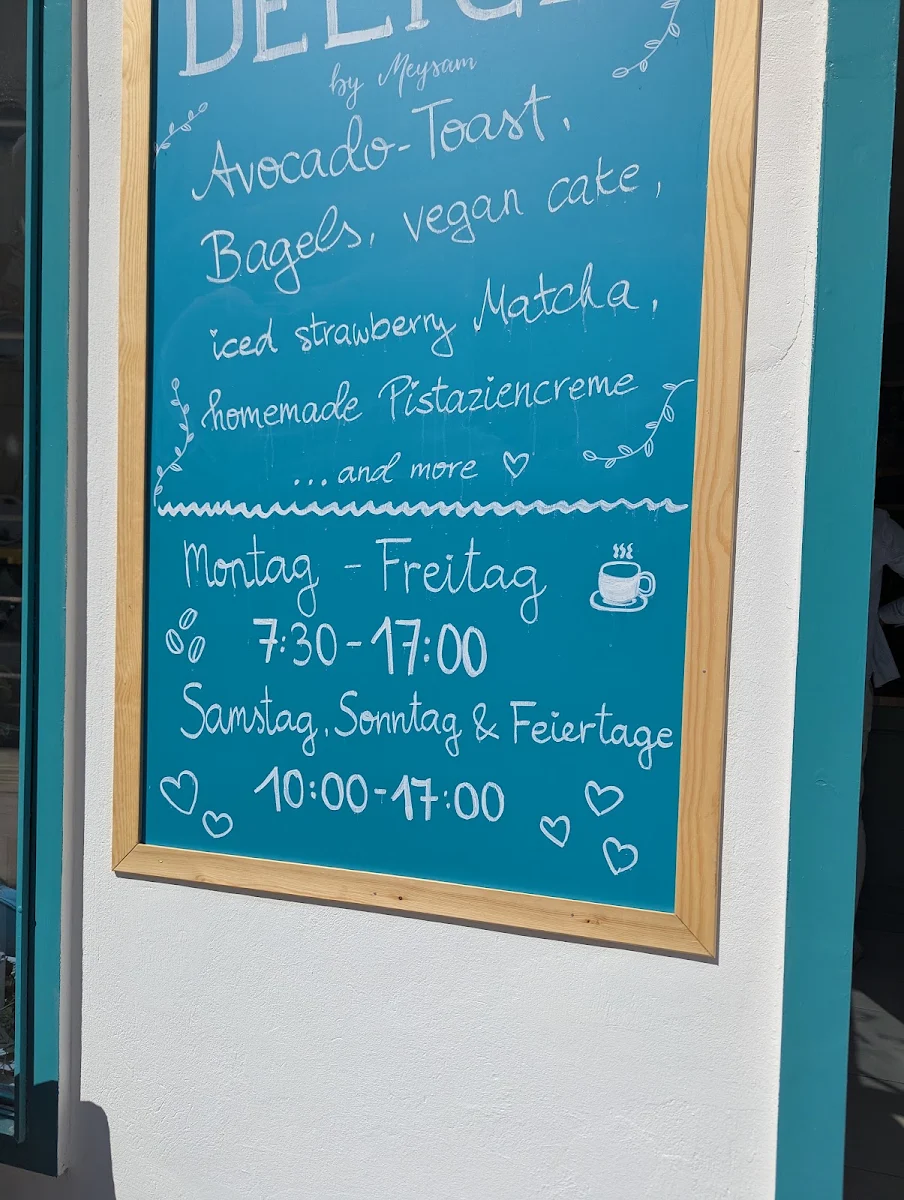 by Meysam
Avocado-Toast,
Bagels, vegan cake,
iced strawberry Matcha,
homemade Pistaziencreme
...and more ♡
Montag - Freitag
7:30-17:00
Samstag, Sonntag & Feiertage
10:00-17:00